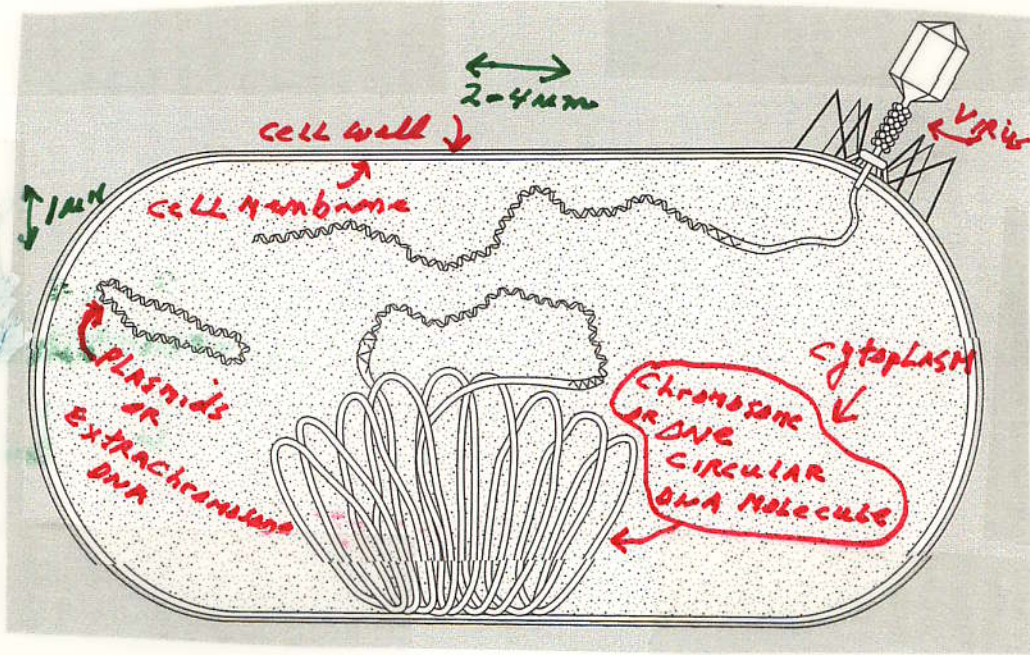 2-4 µm
cell wall
Virus
1 µM
cell Membrane
cytoplasm
PLASMids
OR
Extrachromosone
DNA
Chromosone
OR ONE
CIRCULAR
DNA MoLecule